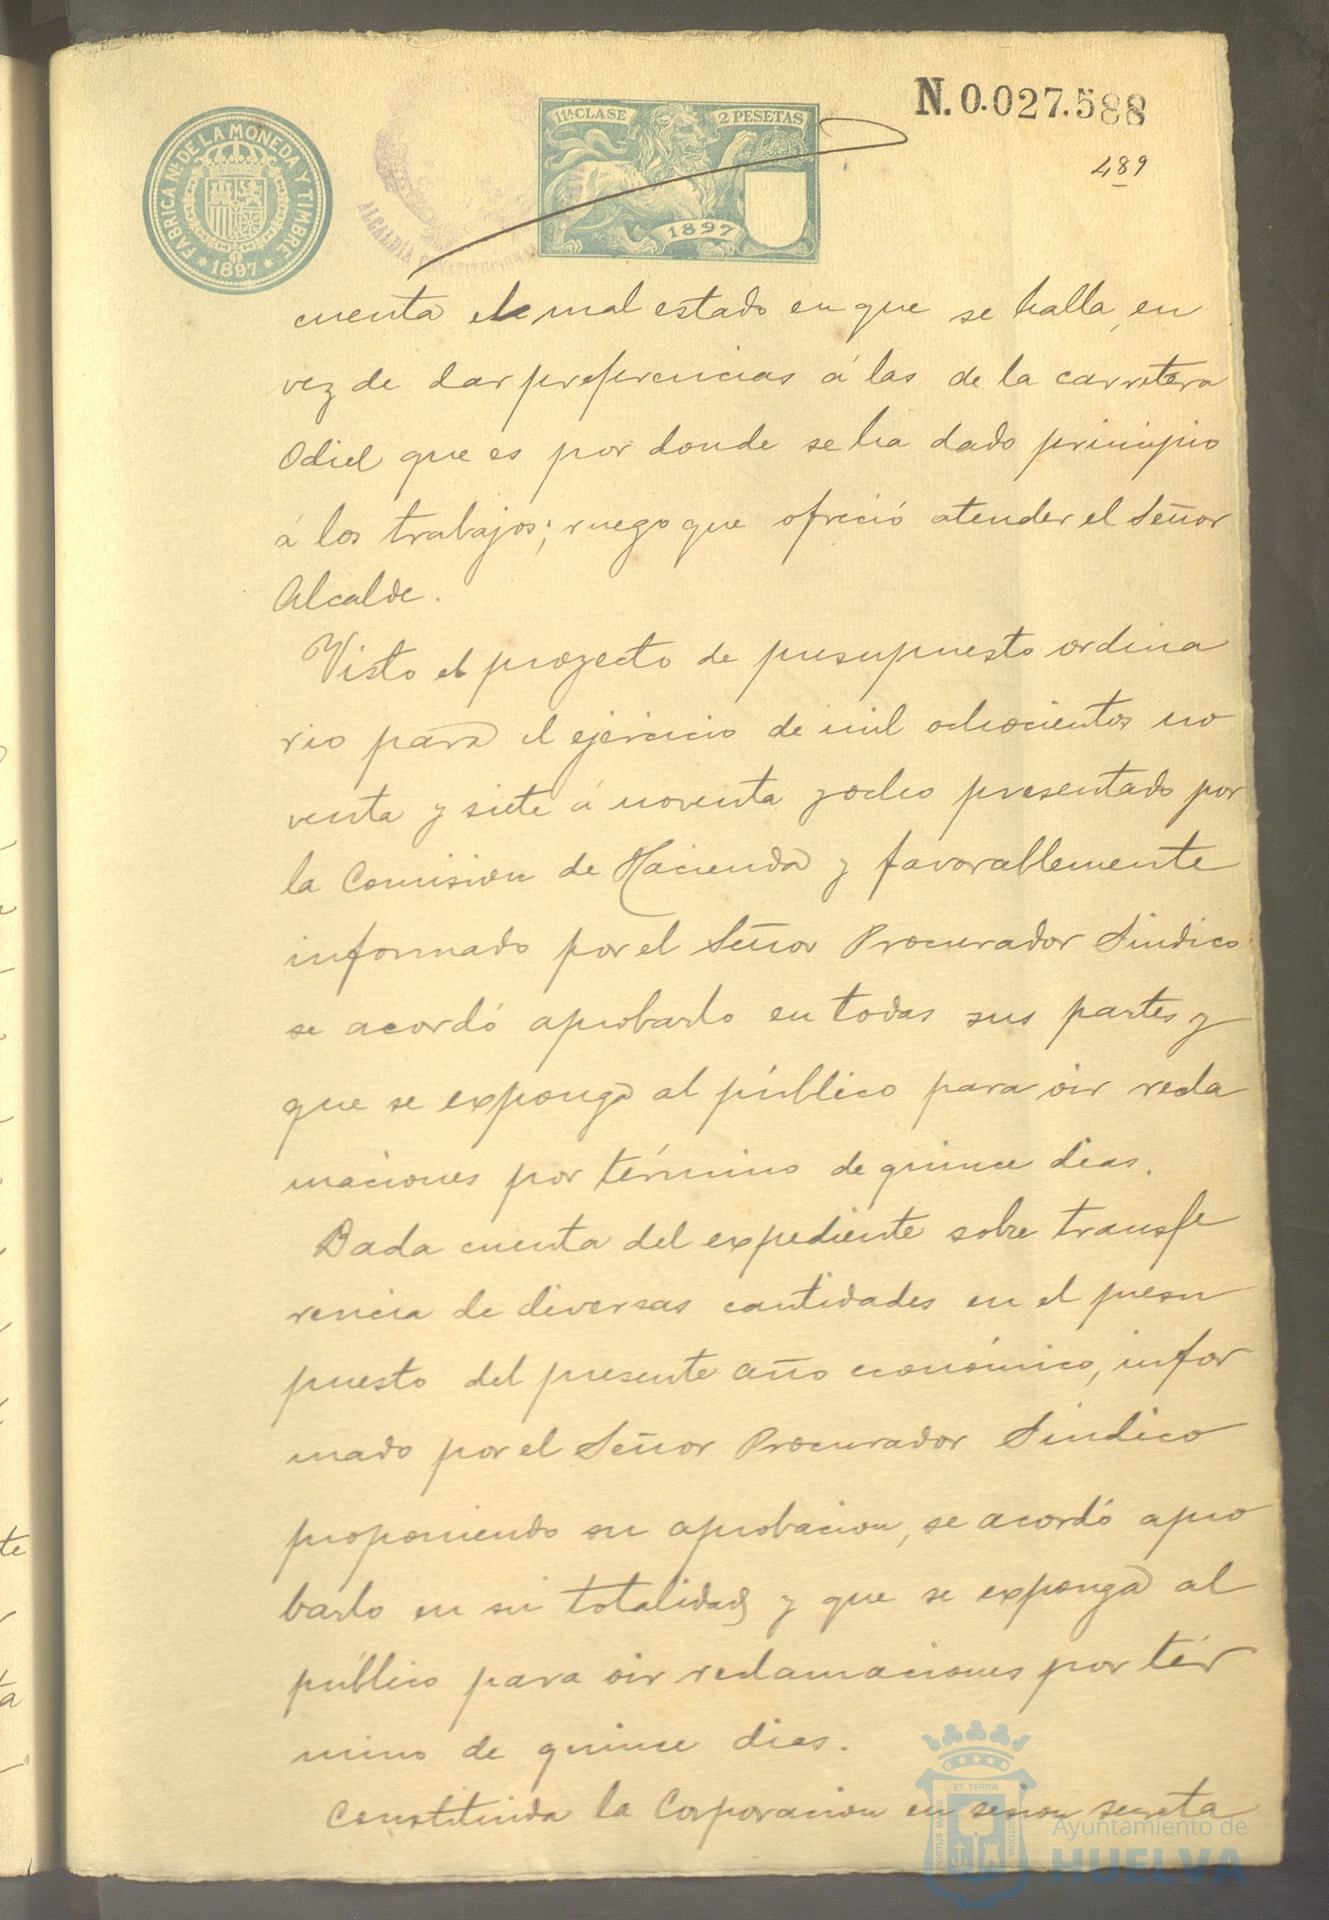 N. 0.027.588
489
FABRICA Nl. DE LA MONEDA Y TIMBRE
* 1897 *
ALCALDÍA CONSTITUCIONAL
11ª CLASE 2 PESETAS
1897
cuenta el mal estado en que se halla, en
vez de dar preferencias á las de la carretera
Odiel que es por donde se ha dado principio
á los trabajos; ruego que ofreció atender el Señor
Alcalde.
Visto el proyecto de presupuesto ordina
rio para el ejercicio de mil ochocientos no
venta y siete á noventa y ocho presentado por
la Comision de Hacienda y favorablemente
informado por el Señor Procurador Sindico
se acordó aprobarlo en todas sus partes y
que se exponga al público para oir recla
maciones por término de quince dias.
Dada cuenta del expediente sobre transfe
rencia de diversas cantidades en el presu
puesto del presente año económico, infor
mado por el Señor Procurador Sindico
proponiendo su aprobacion, se acordó apro
barlo en su totalidad y que se exponga al
público para oir reclamaciones por tér
mino de quince dias.
Constituida la Corporacion en sesion secreta
ET TERRÆ
PORTUS MARIS
CUSTODIA
Ayuntamiento de
HUELVA